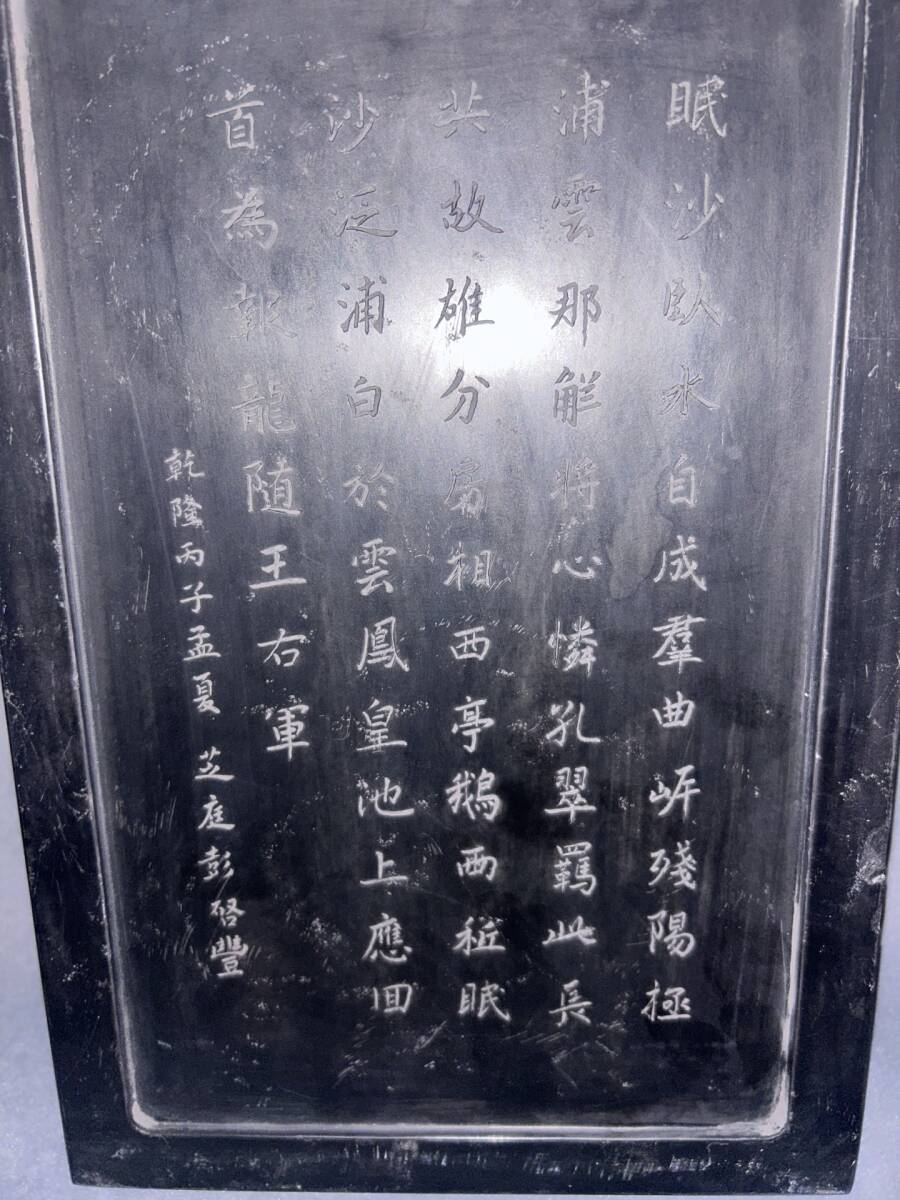 眠沙臥水自成羣曲岸殘陽極
浦雲那解將心憐孔翠羈此長
共故雄分房相西亭鵝兩栢眠
沙泛浦白於雲鳳皇池上應回
首為報龍隨王右軍
乾隆丙子孟夏芝庭彭啓豐